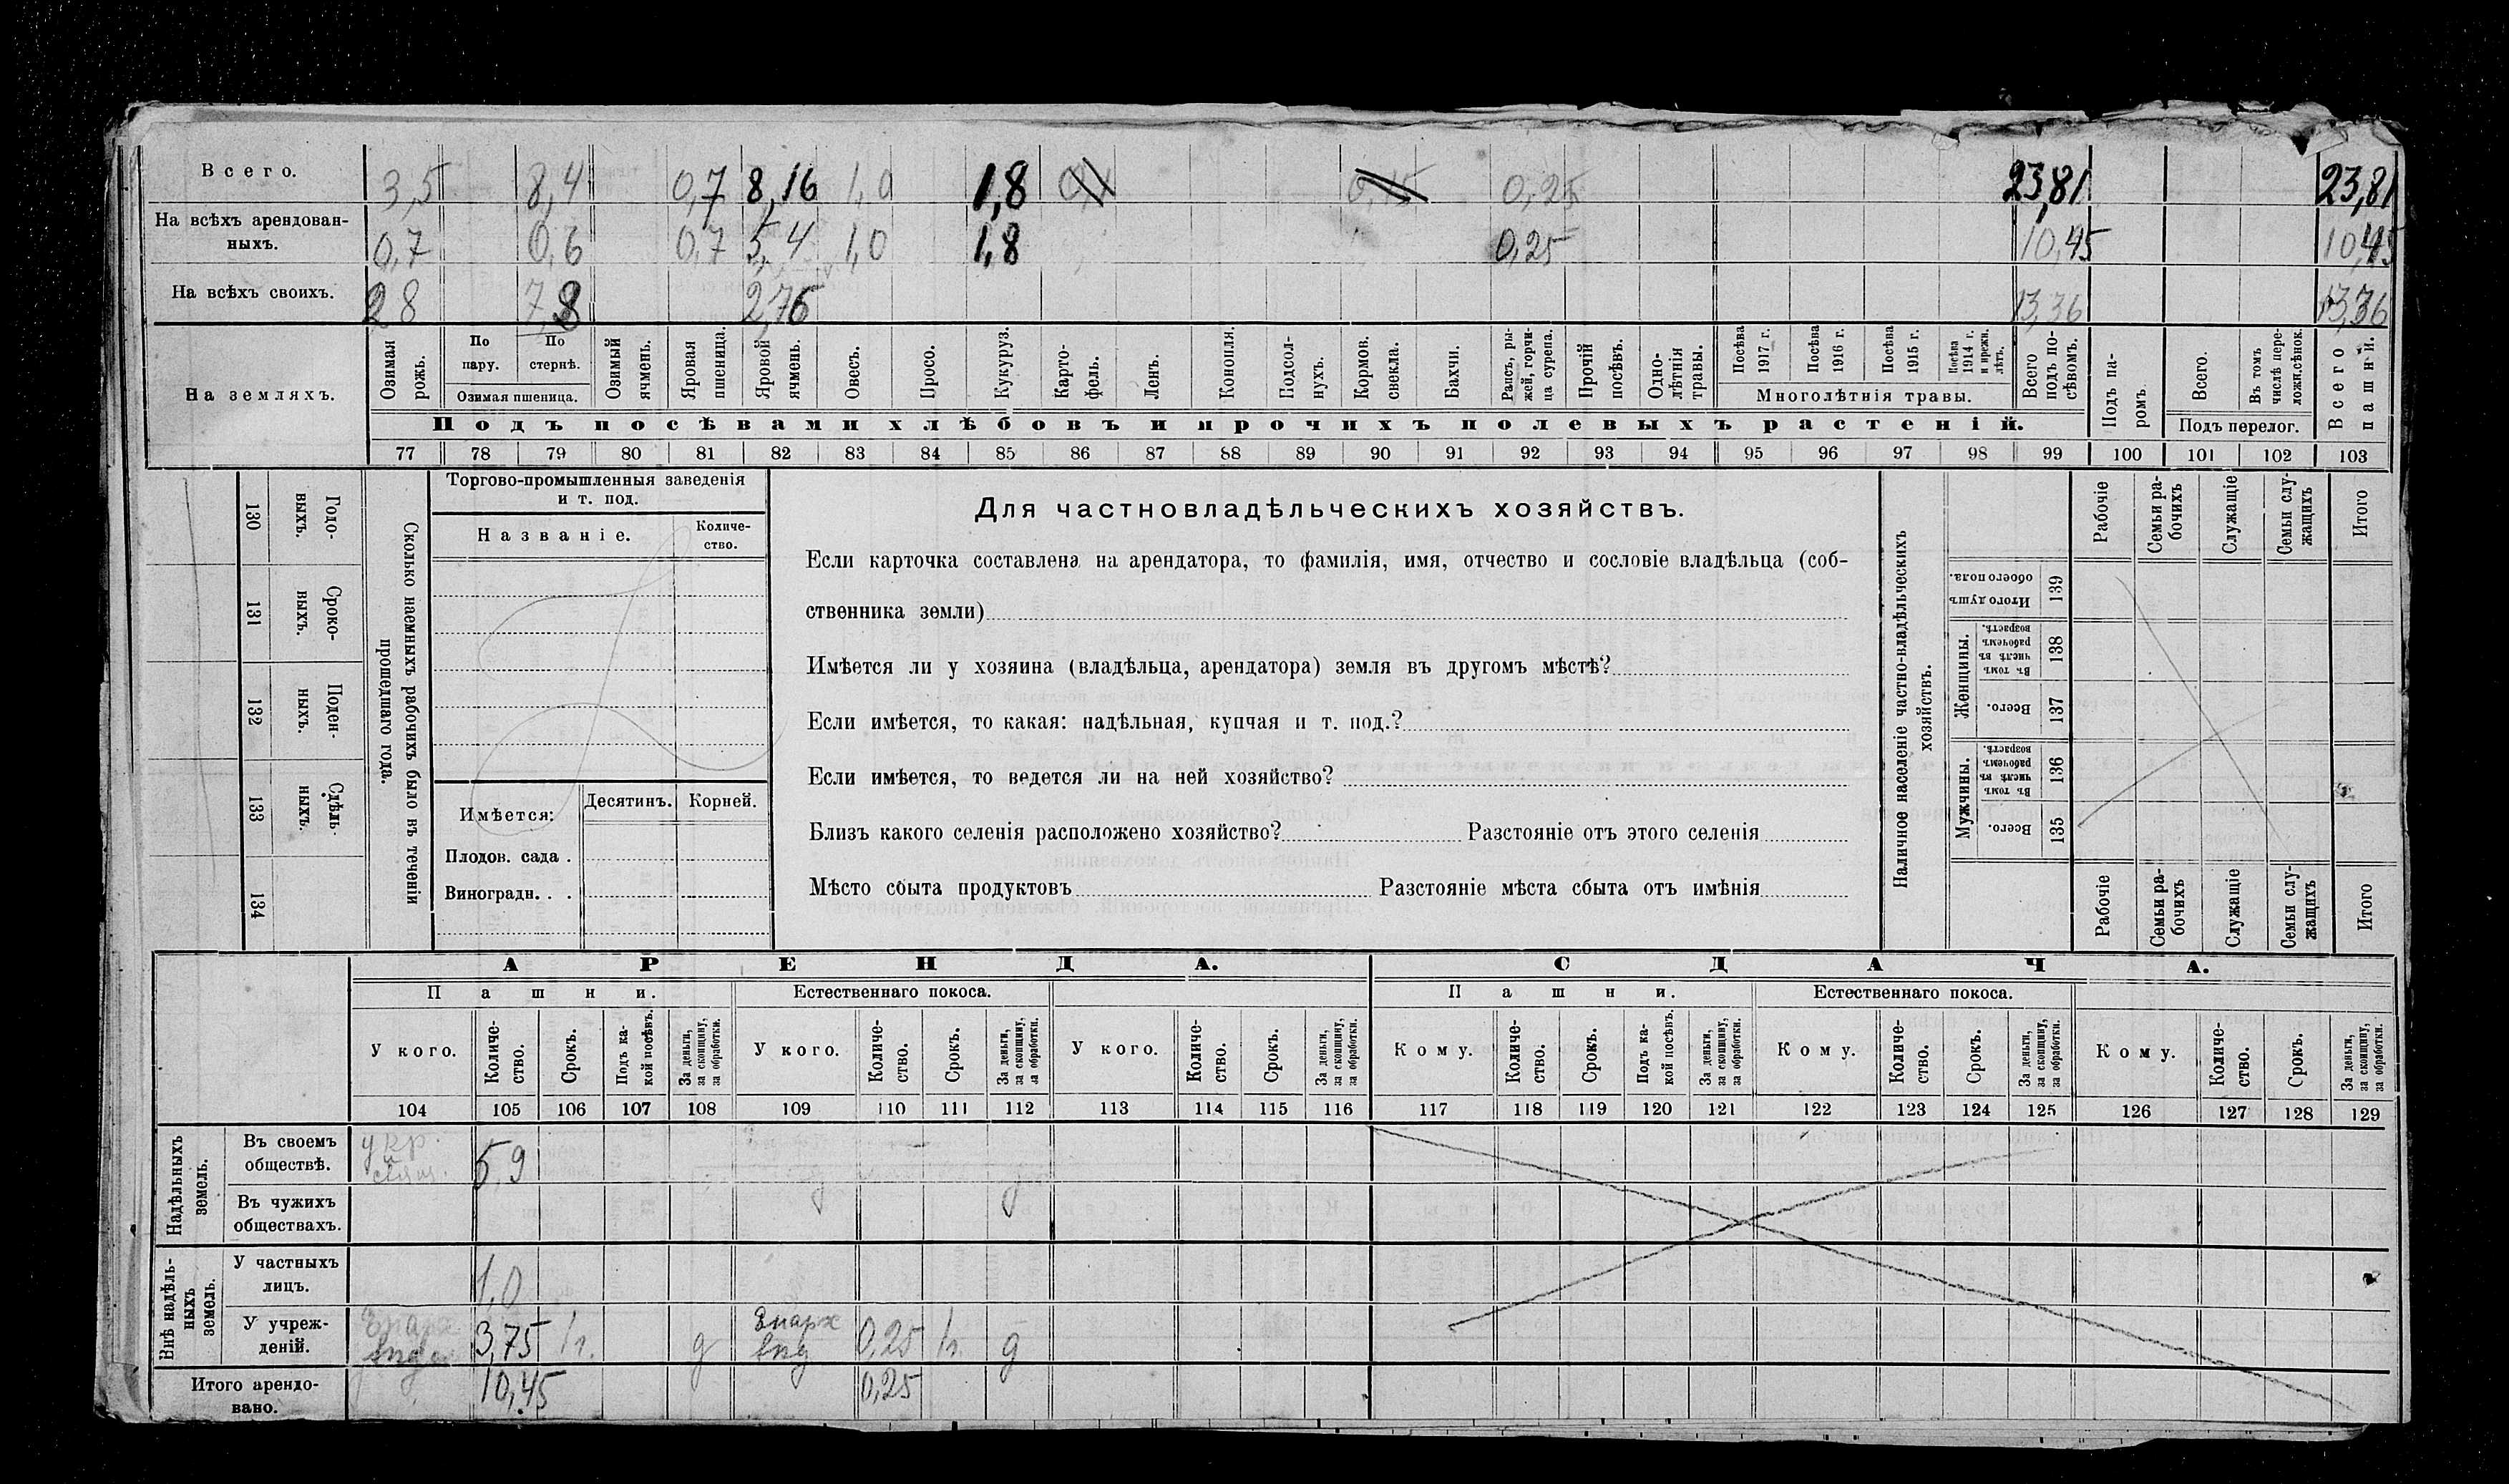 Всего. 3,5 8,4 0,7 8,16 1,0 1,8 0,25 23,81 23,81
На всѣхъ арендован-
ныхъ. 0,7 0,6 0,7 5,4 1,0 1,8 0,25 10,45 10,45
На всѣхъ своихъ. 2,8 7,8 2,76 13,36 13,36
На земляхъ.
Озимая рожь.
По пару.
По стернѣ.
Озимая пшеница.
Озимый ячмень.
Яровая пшеница.
Яровой ячмень.
Овесъ.
Просо.
Кукуруз.
Карто-
фель.
Ленъ.
Конопля.
Подсол-
нухъ.
Кормов.
свекла.
Бахчи.
Рапсъ, ры-
жей, горчи-
ца сурепа.
Прочій посѣвъ.
Одно-
лѣтнія травы.
Посѣва 1917 г.
Посѣва 1916 г.
Посѣва 1915 г.
Посѣва 1914 г. и прежн. лѣтъ.
Многолѣтнія травы.
Всего подъ по-
сѣвомъ.
Подъ па-
ромъ.
Всего.
Въ томъ числѣ пере-
ложн.сѣнок.
Подъ перелог.
Всего пашни.
Подъ посѣвами хлѣбовъ и прочихъ полевыхъ растеній.
77 78 79 80 81 82 83 84 85 86 87 88 89 90 91 92 93 94 95 96 97 98 99 100 101 102 103
130 Годо-
выхъ.
131 Сроко-
ныхъ.
132 Поден-
ныхъ.
133 Сдѣль-
ныхъ.
134
Сколько наемныхъ рабочихъ было въ теченіи
прошедшаго года.
Торгово-промышленныя заведенія
и т. под.
Названіе.
Количе-
ство.
Имѣется: Десятинъ. Корней.
Плодов. сада .
Виноградн. . .
Для частновладѣльческихъ хозяйствъ.
Если карточка составлена на арендатора, то фамилія, имя, отчество и сословіе владѣльца (соб-
ственника земли)
Имѣется ли у хозяина (владѣльца, арендатора) земля въ другомъ мѣстѣ?
Если имѣется, то какая: надѣльная, купчая и т. под.?
Если имѣется, то ведется ли на ней хозяйство?
Близъ какого селенія расположено хозяйство? Разстояніе отъ этого селенія
Мѣсто сбыта продуктовъ Разстояніе мѣста сбыта отъ имѣнія
Наличное населеніе частно-владѣльческихъ
хозяйствъ.
Рабочіе
Семьи ра-
бочихъ
Служащіе
Семьи слу-
жащихъ
Итого
Итого душъ обоего пола. 139
Женщины.
Въ томъ числѣ въ рабочемъ возрастѣ. 138
Всего. 137
Мужчины.
Въ томъ числѣ въ рабочемъ возрастѣ. 136
Всего. 135
Рабочіе
Семьи ра-
бочихъ
Служащіе
Семьи слу-
жащихъ
Итого
АРЕНДА. СДАЧА.
Пашни. Естественнаго покоса. Пашни. Естественнаго покоса.
У кого.
Количе-
ство.
Срокъ.
Подъ ка-
кой посѣвъ.
За деньги, за скопщину, за обработки.
У кого.
Количе-
ство.
Срокъ.
За деньги, за скопщину, за обработки.
У кого.
Количе-
ство.
Срокъ.
За деньги, за скопщину, за обработки.
Кому.
Количе-
ство.
Срокъ.
Подъ ка-
кой посѣвъ.
За деньги, за скопщину, за обработки.
Кому.
Количе-
ство.
Срокъ.
За деньги, за скопщину, за обработки.
Кому.
Количе-
ство.
Срокъ.
За деньги, за скопщину, за обработки.
104 105 106 107 108 109 110 111 112 113 114 115 116 117 118 119 120 121 122 123 124 125 126 127 128 129
Надѣльныхъ
земель.
Въ своемъ
обществѣ. у кр. 5,9
Въ чужихъ
обществахъ.
Внѣ надѣль-
ныхъ
земель.
У частныхъ
лицъ. 1,0
У учреж-
деній. Епарх 3,75 1г. д Епарх 0,25 1г. д
Итого арендо-
вано. 10,45 0,25